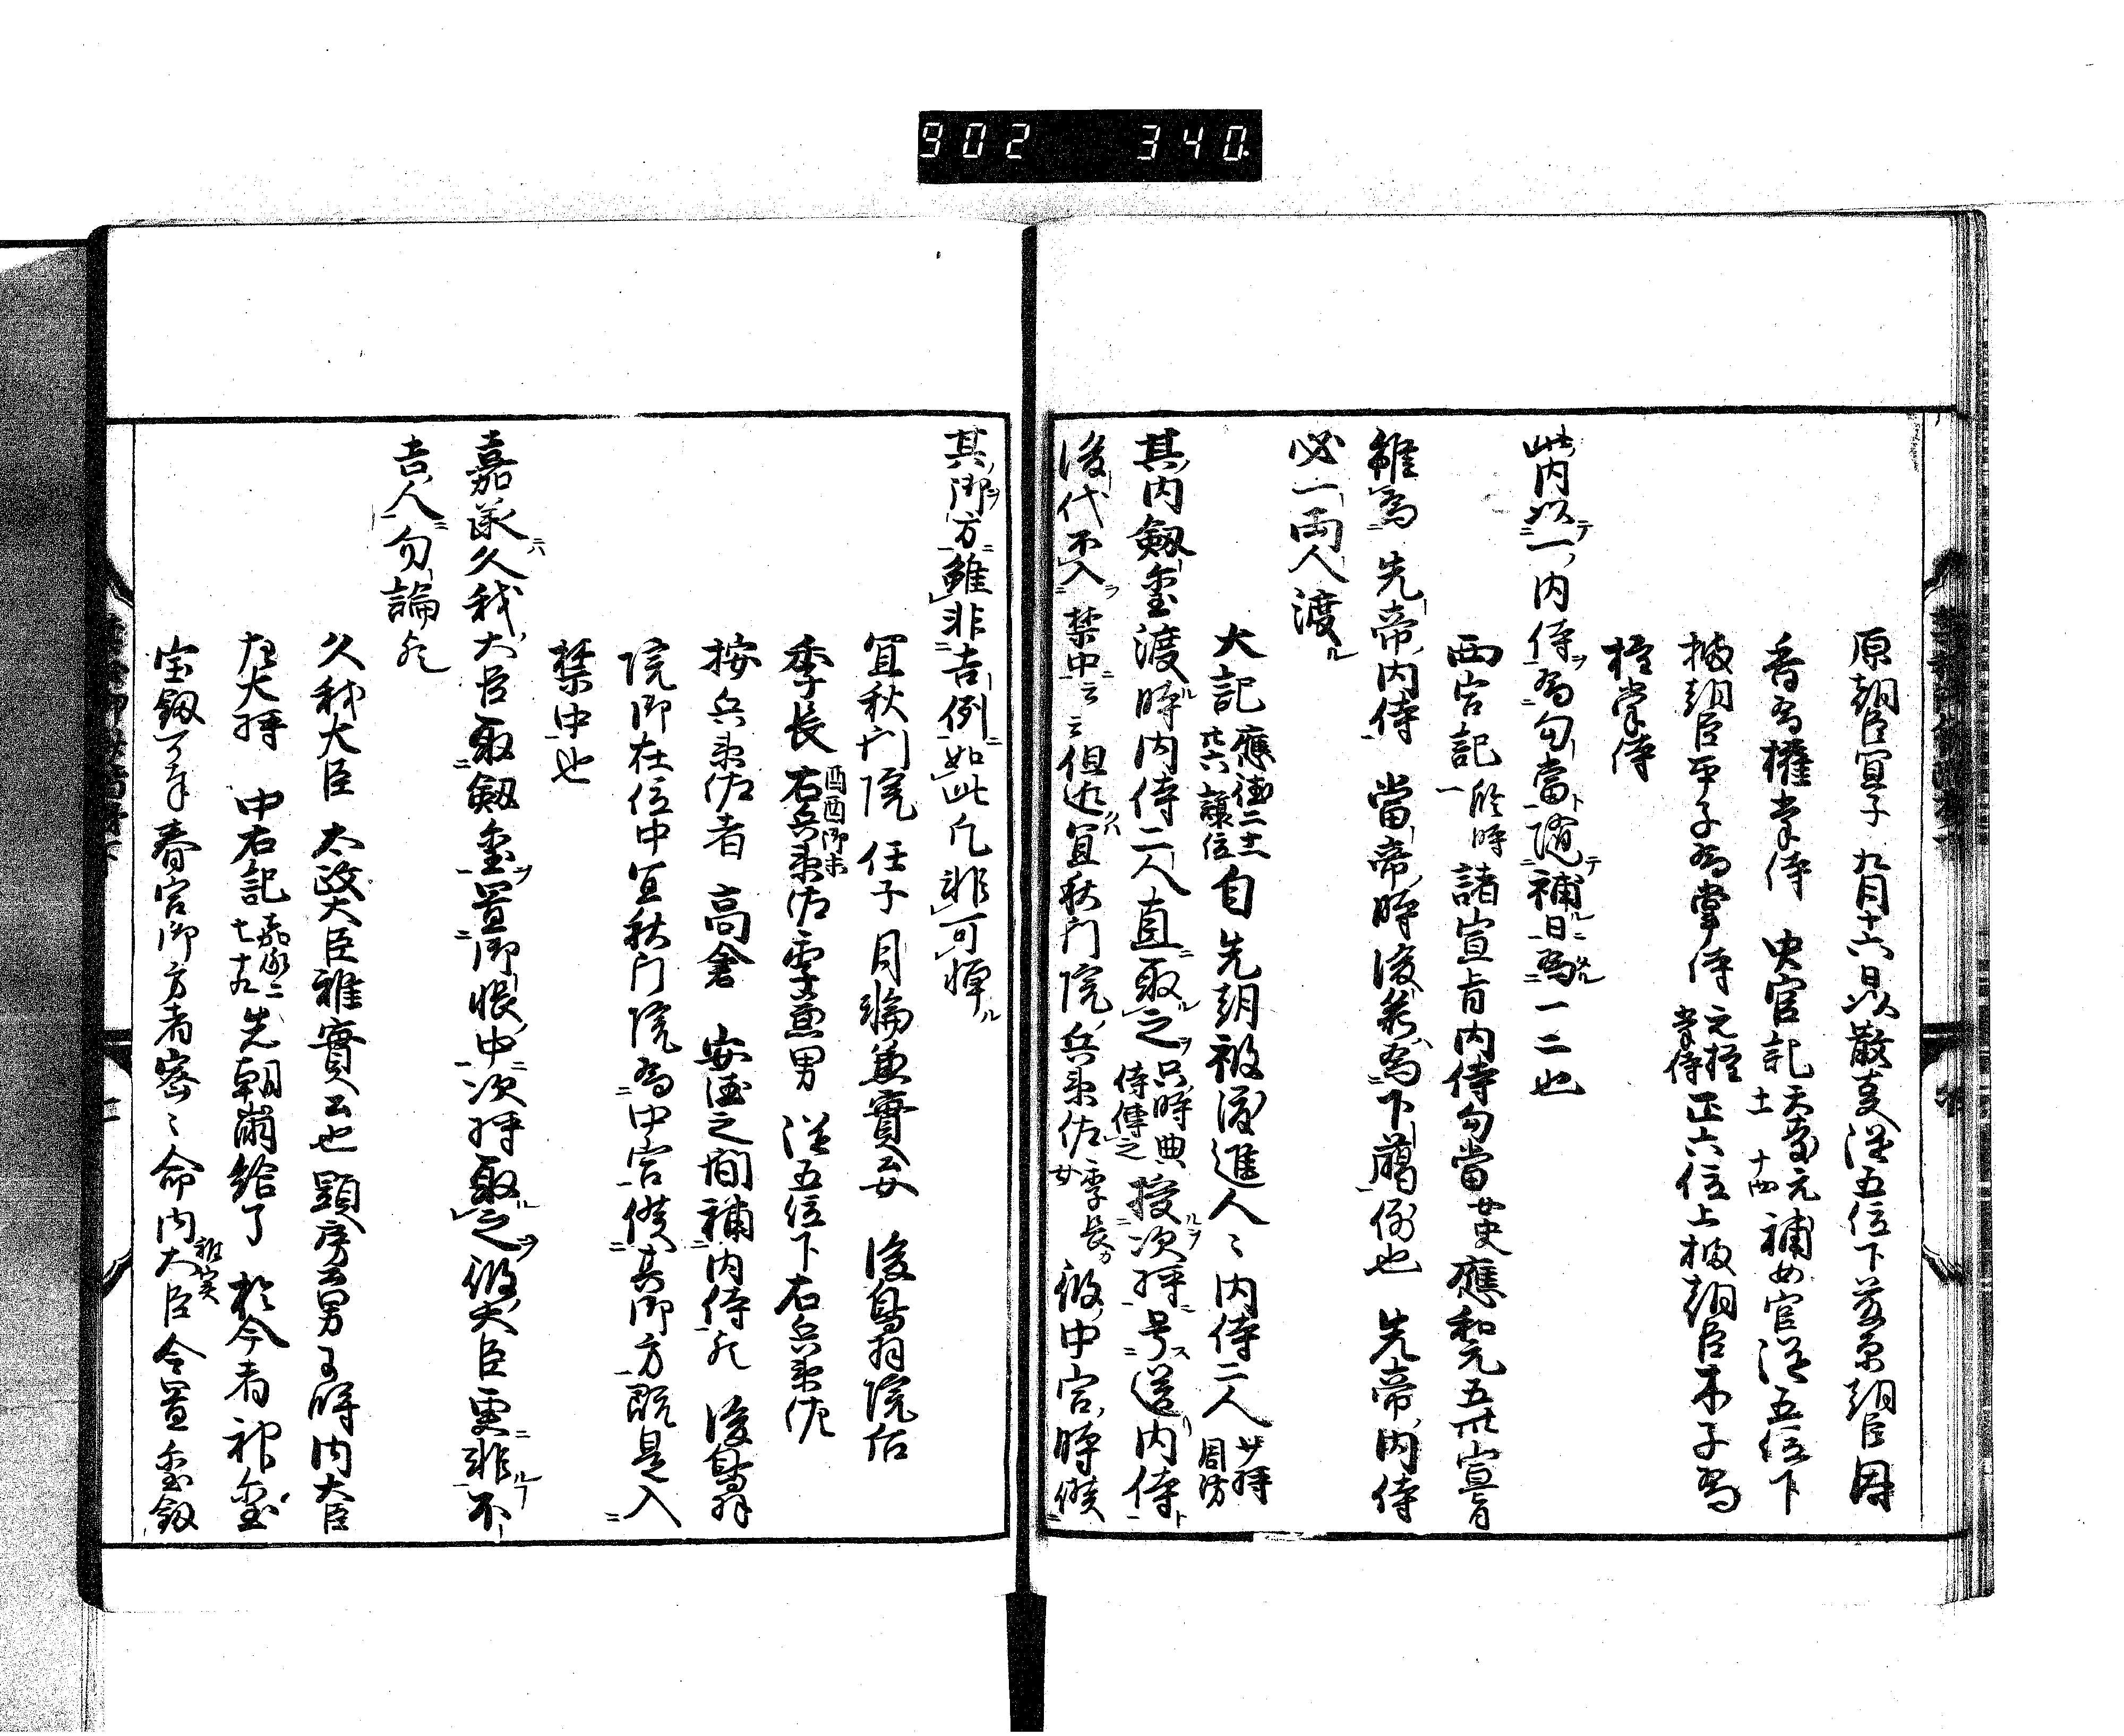 902 340
原朝臣宜子 九月十六日以散事従五位下菅原朝臣因
香為権掌侍 史官記 天慶元 十一 十四 補女官従五位下
橘朝臣平子為掌侍 元権掌侍 正六位上橘朝臣木子為
権掌侍
此内以一内侍為勾當随補日為一二也
西宮記 於時 諸宣旨内侍勾當 女史 應和元五廿宣旨
雖為 先帝内侍 當帝時後参為下﨟例也 先帝内侍
必一両人渡
大記 應徳三十一廿六譲位 自 先朝被渡進人々内侍二人 少将 周防
其内剱璽渡時内侍二人直取之 只時典侍傳之 授次将号送内侍
後代不入 禁中云々但近宜秋门院兵衛佐 季長女 彼中宮時候
其御方雖非吉例如此凡非可憚
宜秋门院 任子 月輪兼實公女 後鳥羽院后
季長 右兵衛佐季兼男 従五位下右兵衛佐
按兵衛佐者 高倉 安徳之間補内侍 後鳥羽
院御在位中宜秋门院為中宮候其御方既是入
禁中也
嘉承久我大臣取剱璽置御帳中次将取之彼大臣更非不
吉人勿論
久我大臣 太政大臣雅實公也 顕房公男 于時内大臣
左大将 中右記 嘉承二七十九 先朝崩給了 於今者神璽
宝剱可奉春宮御方者密々命内大臣 雅実 令置璽剱